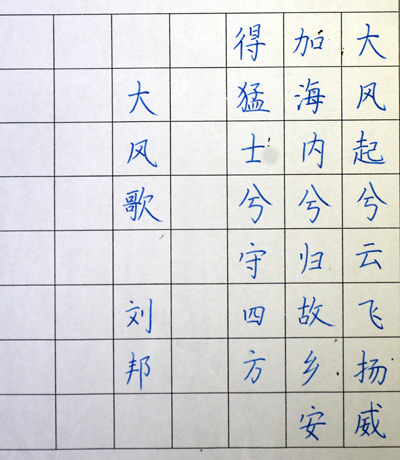 大风起兮云飞扬威
加海内兮归故乡安
得猛士兮守四方
大风歌 刘邦